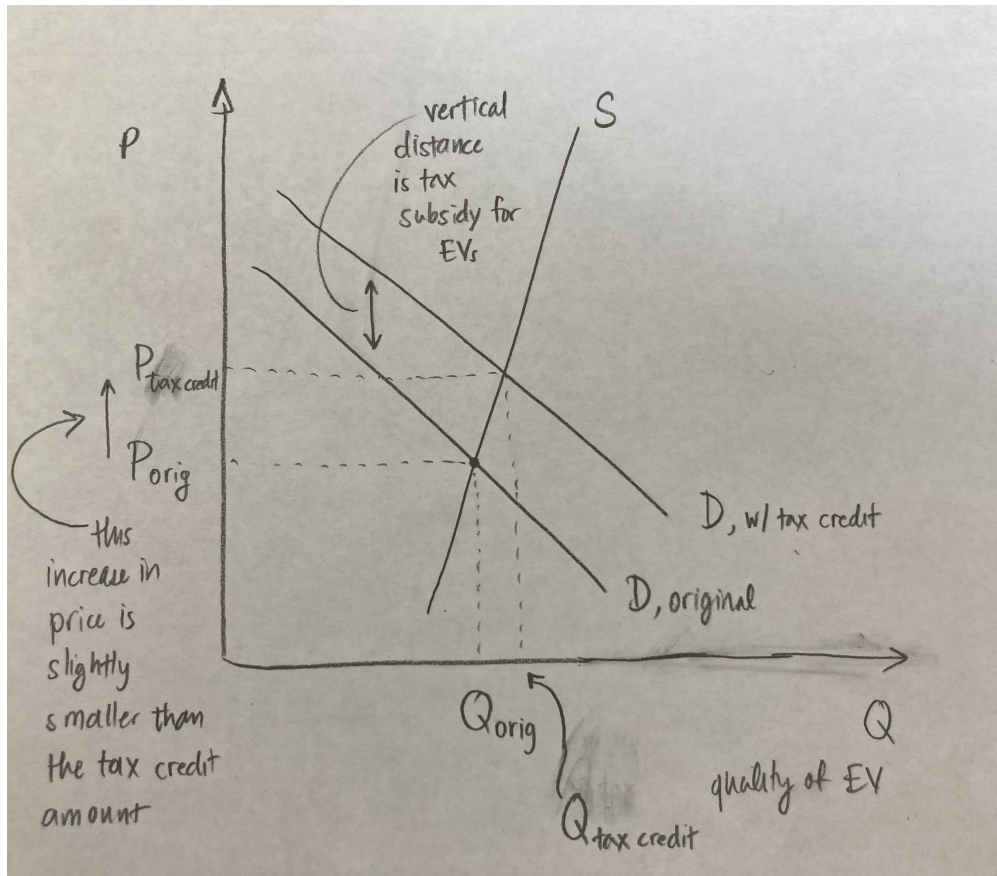 P
vertical
distance
is tax
subsidy for
EVs
S
P tax credit
P orig
this
increase in
price is
slightly
smaller than
the tax credit
amount
D, w/ tax credit
D, original
Q orig
Q tax credit
Q
quality of EV